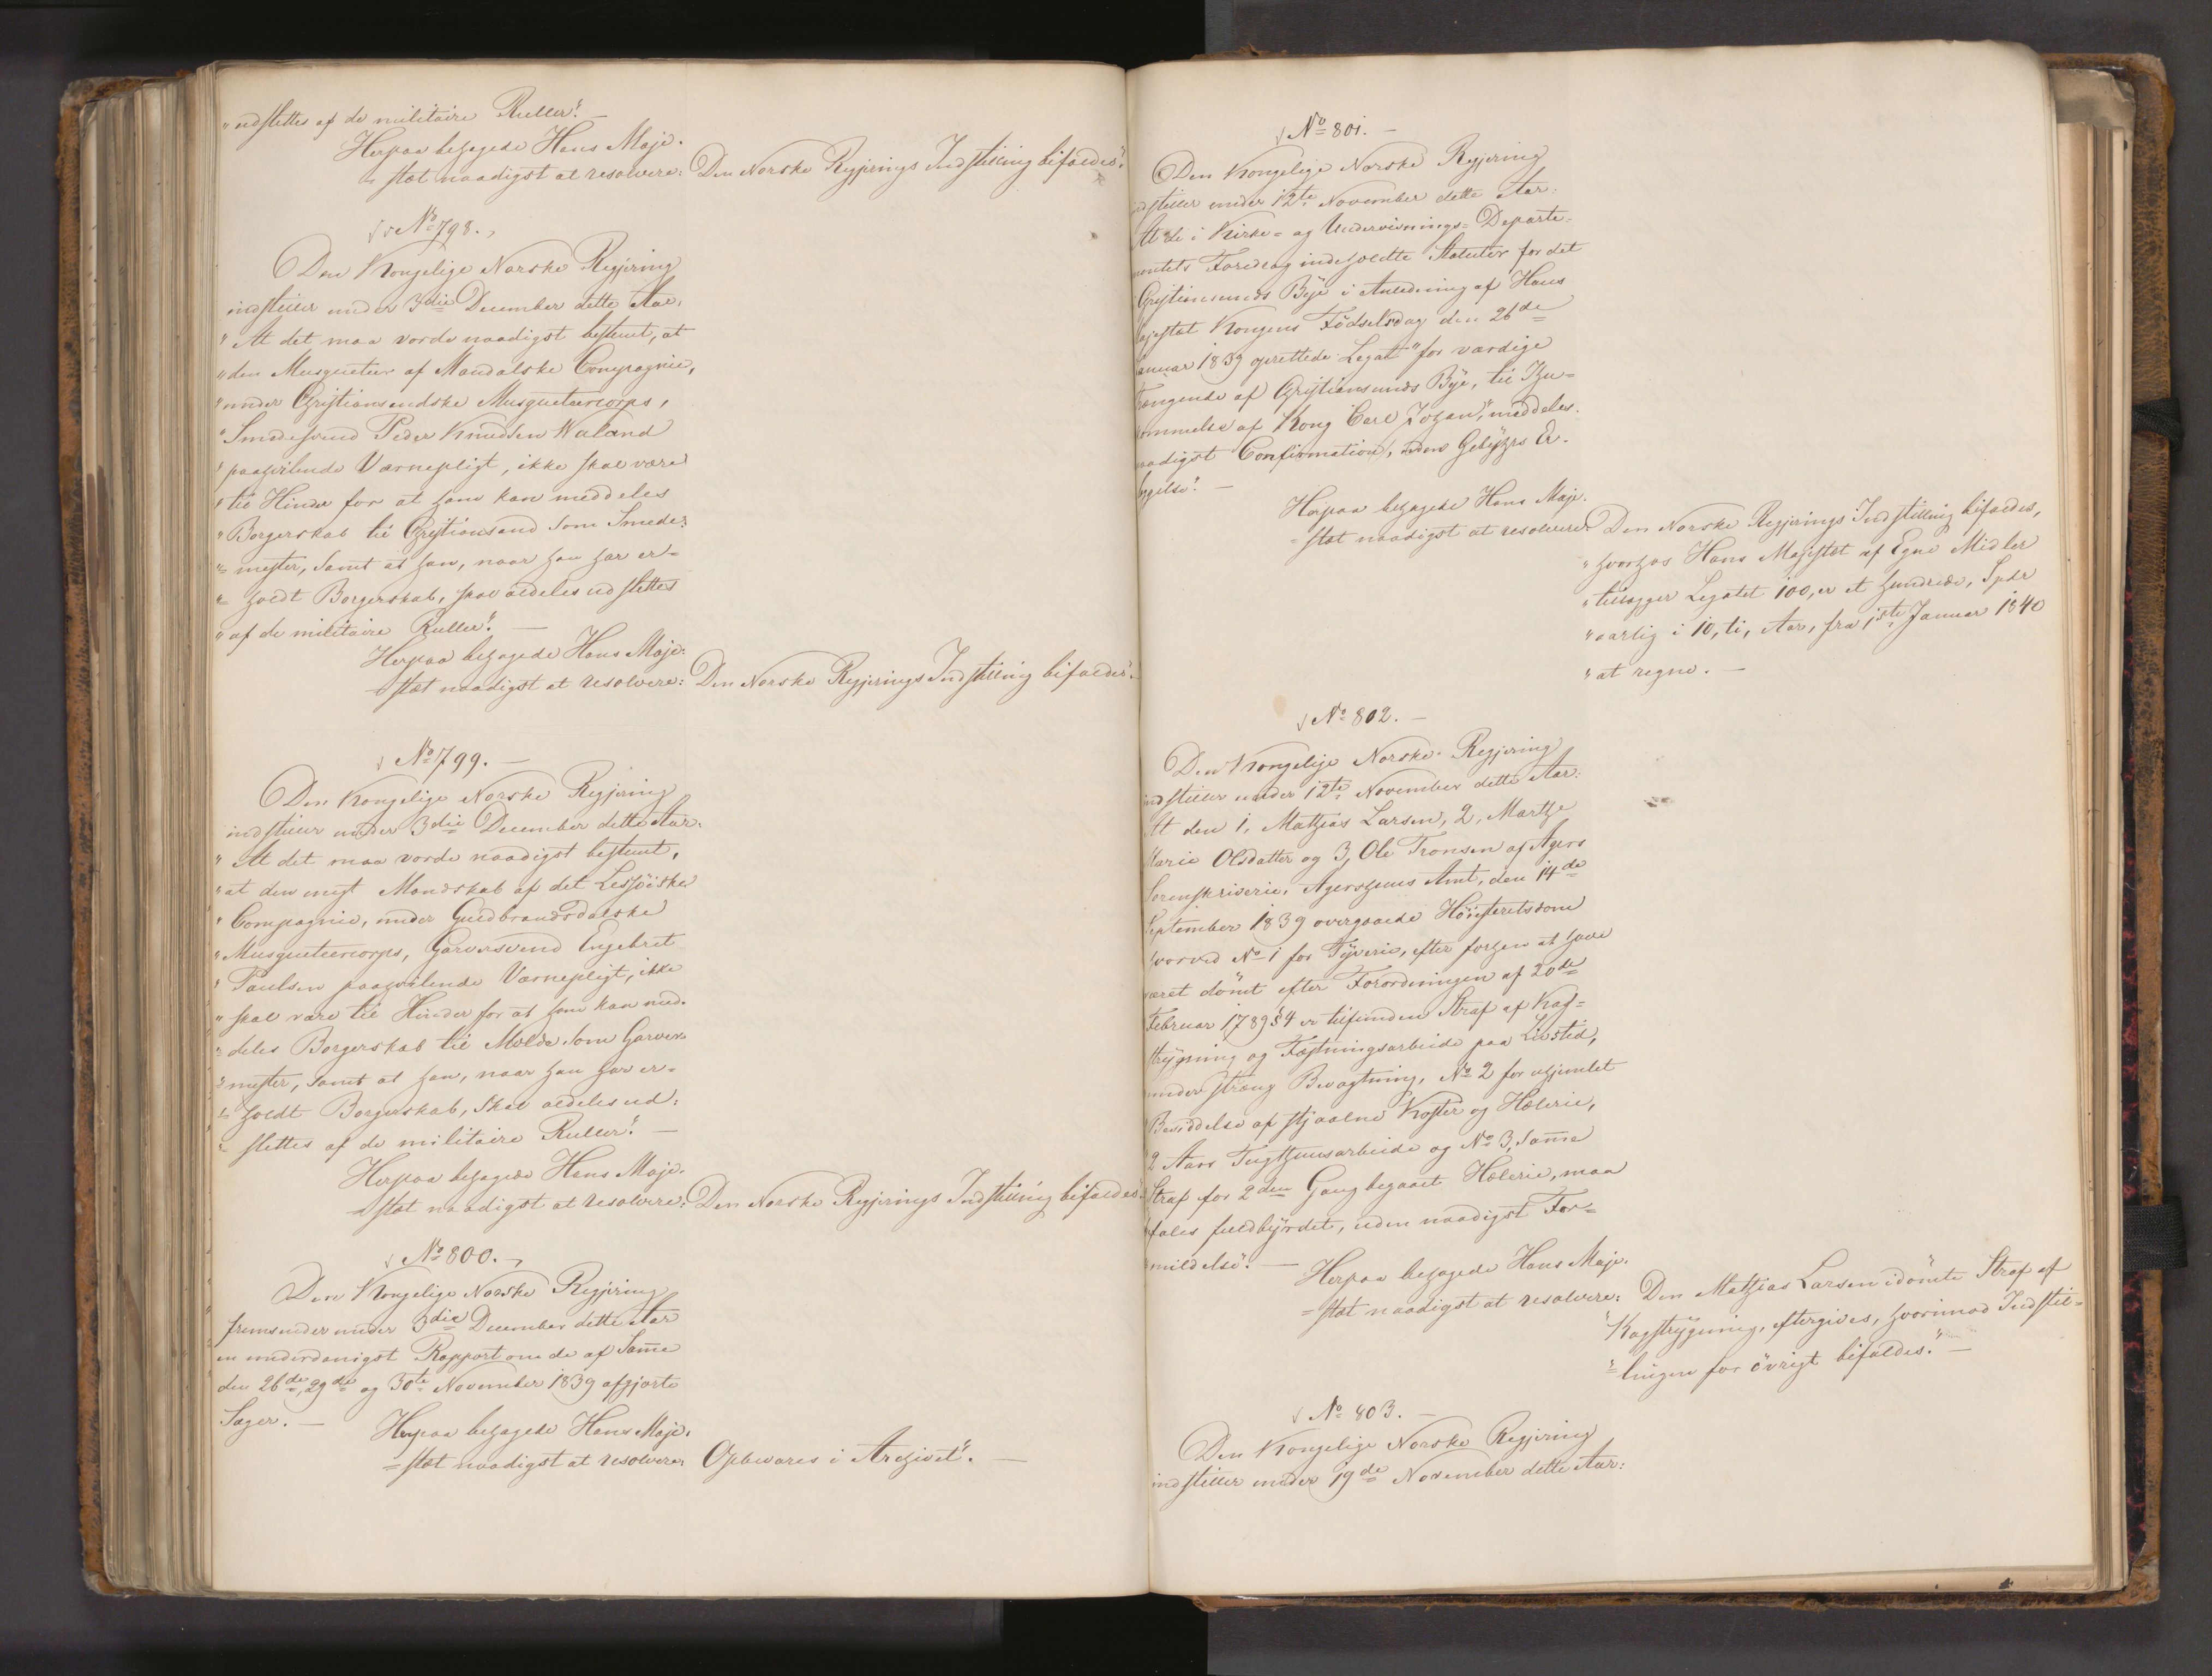 "udslettes af de militaire Ruller". —
Herpaa behagede Hans Maje-
stæt naadigst at resolvere: Den Norske Regjerings Indstilling bifaldes".
No 798.
Den Kongelige Norske Regjering
indstiller under 3die December dette Aar:
"At det maa vorde naadigst bestemt, at
"den Musqueteer af Mandalske Compagnie,
"under Christiansandske Musqueteercorps,
"Smedesvend Peder Knudsen Waland
"paahvilende Værnepligt, ikke skal være
"til Hinder for at ham kan meddeles
"Borgerskab til Christiansand som Smede-
"mester, samt at han, naar han har er-
"holdt Borgerskab, skal aldeles udslettes
"af de militaire Ruller". —
Herpaa behagede Hans Maje-
stæt naadigst at resolvere: Den Norske Regjerings Indstilling bifaldes".
No 799. —
Den Kongelige Norske Regjering
indstiller under 3die December dette Aar:
"At det maa vorde naadigst bestemt,
"at den engt Mandskab af det Lessøiske
"Compagnie, under Guldbrandsdalske
"Musqueteercorps, Garversvend Engebret
"Paulsen paahvilende Værnepligt, ikke
"skal være til Hinder for at ham kan med-
"deles Borgerskab til Molde som Garver-
"mester, samt at han, naar han har er-
"holdt Borgerskab, skal aldeles ud-
"slettes af de militaire Ruller". —
Herpaa behagede Hans Maje-
stæt naadigst at resolvere: Den Norske Regjerings Indstilling bifaldes".
No 800. —
Den Kongelige Norske Regjering
fremsender under 3die December dette Aar
en underdanigst Rapport om de af Samme
den 26de, 29de og 30te November 1839 afgjorte
Sager. —
Herpaa behagede Hans Maje-
stæt naadigst at resolvere: Opbevares i Archivet". —
No 801. —
Den Kongelige Norske Regjering
indstiller under 12te November dette Aar:
At de i Kirke- og Underviisnings-Departe-
mentets Foredrag indeholdte Statuter for det
Christiansunds Bye i Anledning af Hans
Majestæt Kongens Födselsdag den 26de
Januar 1839 oprettede Legat "for værdige
Trængende af Christiansunds Bye, til Ihu-
kommelse af Kong Carl Johan", meddeles
naadigst Confirmation, uden Gebyhrs Er-
læggelse". —
Herpaa behagede Hans Maje-
stæt naadigst at resolvere: Den Norske Regjerings Indstilling bifaldes,
"hvorhos Hans Majestæt af Egne Midler
"tillægger Legatet 100, er et hundrede, Spdr
"aarlig i 10, ti, Aar, fra 1ste Januar 1840
"at regne. —
No 802. —
Den Kongelige Norske Regjering
indstiller under 12te November dette Aar:
At den 1, Mathias Larsen, 2, Marthe
Marie Olsdatter og 3, Ole Tronsen af Agers
Sorenskriverie, Agershuus Amt, den 14de
September 1839 overgaaede Höiesteretsdom
hvorved No 1 for Tyverie, efter forhen at have
været dömt efter Forordningen af 20de
Februar 1789 § 4 er tilfunden Straf af Kag-
strygning og Fæstningsarbeide paa Livstid,
under streng Bevogtning, No 2 for ulhjemlet
Besiddelse af stjaalne Koster og Hælerie,
2 Aars Tugthuusarbeide og No 3, samme
Straf for 2den Gang begaaet Hælerie, maa
fales fuldbyrdet, uden naadigst For-
mildelse". —
Herpaa behagede Hans Maje-
stæt naadigst at resolvere: Den Mathias Larsen idömte Straf af
"Kagstrygning, eftergives, hvorimod Indstil-
"lingen for övrigt bifaldes". —
No 803. —
Den Kongelige Norske Regjering
indstiller under 19de November dette Aar: